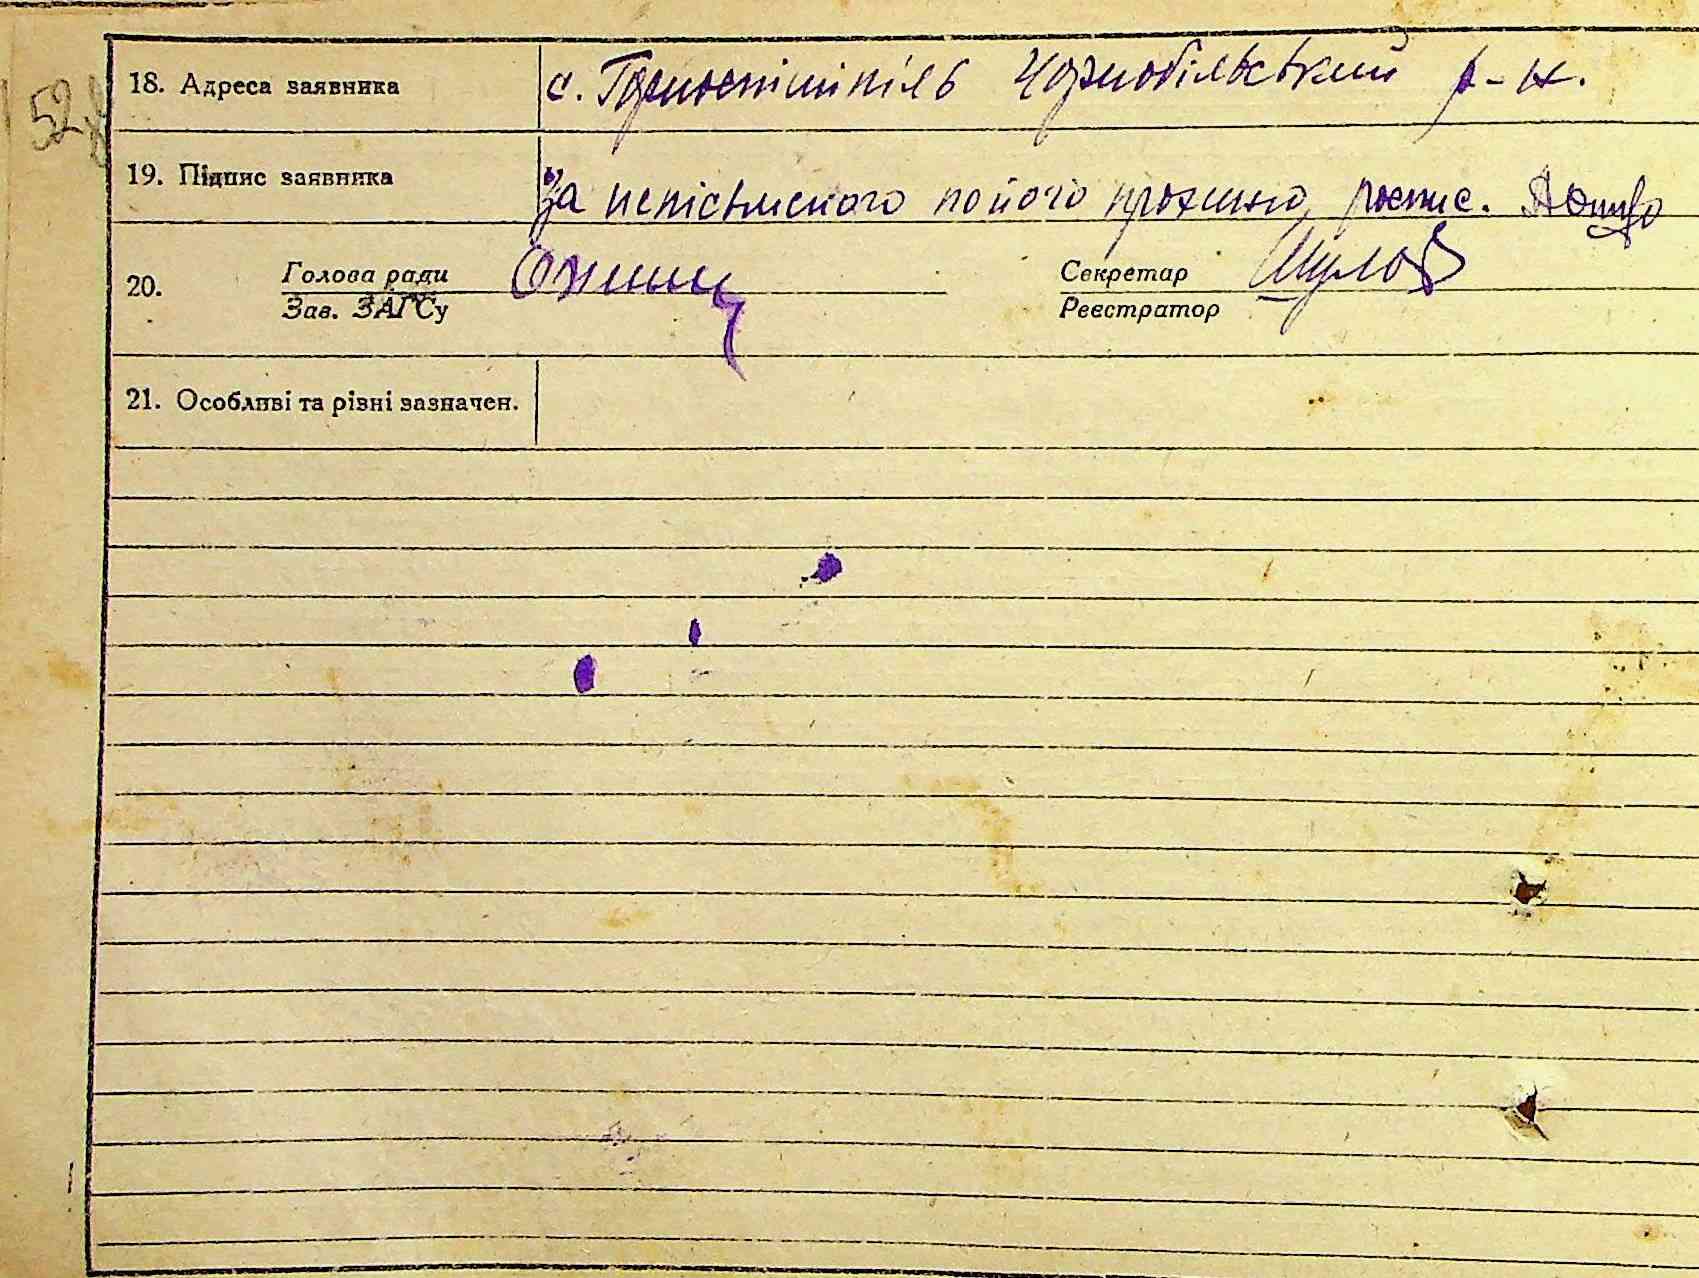 52
18. Адреса заявника с. Горностайпіль Чорнобільський р-н.
19. Підпис заявника За непісьменого по його проханню роспис.
20. Голова ради Секретар
Зав. ЗАГСу Реєстратор
21. Особливі та різні зазначен.